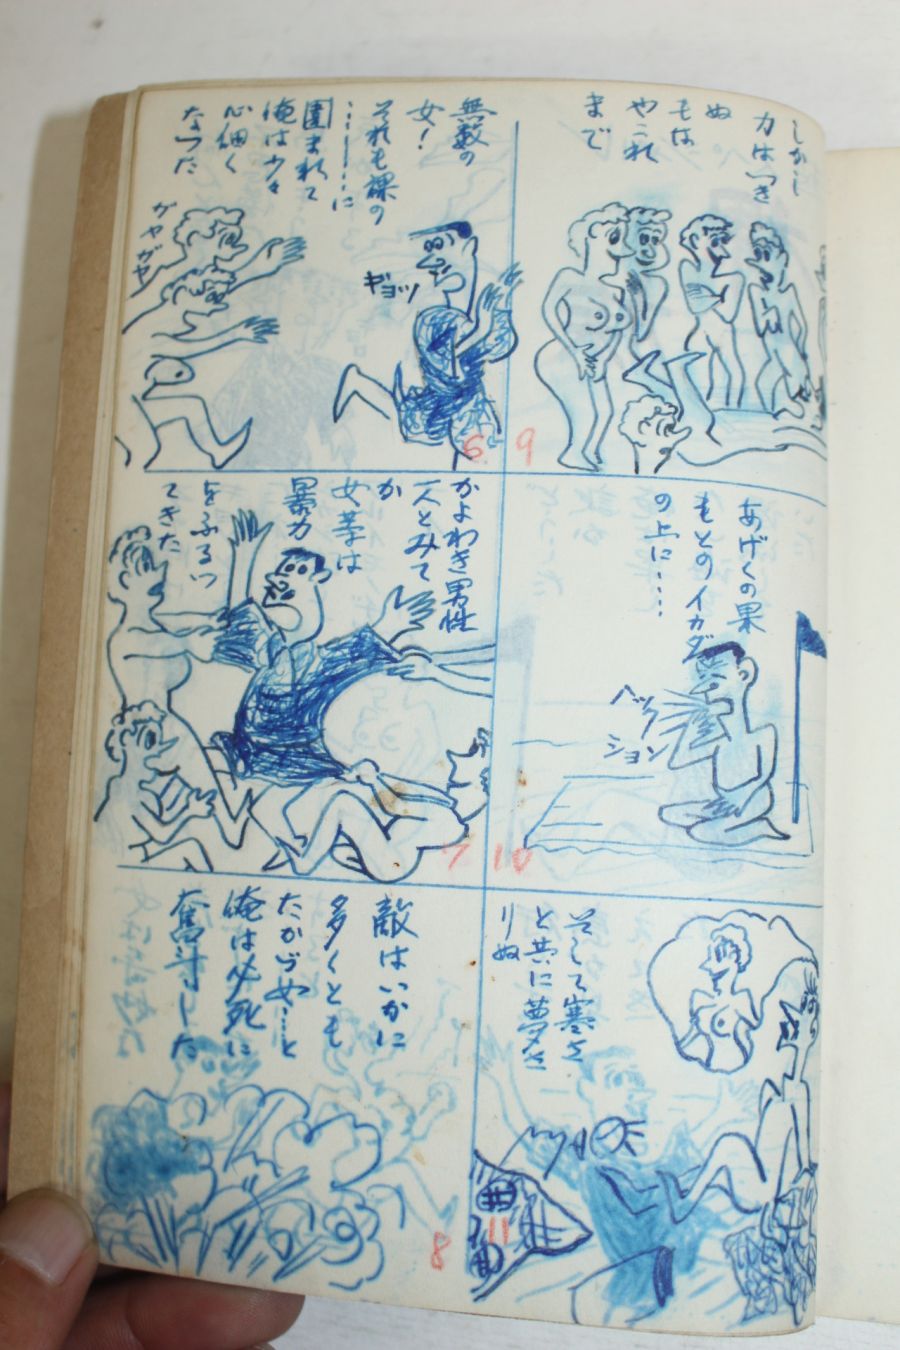 無数の
女！
それも裸の
…………に
囲まれて
俺は少々
心細く
なつた
ガヤガヤ
ギョッ
6
かよわき男性
一人とみて
か
女等は
暴力
をふるつ
てきた
7
敵はいかに
多くとも
たかゞ女…と
俺は必死に
奮斗した
8
しかし
力はつき
ぬ
もは
やこれ
まで
9
あげくの果
もとのイカダ
の上に……
ヘック
ション
10
そして寒さ
と共に夢さ
りぬ
11